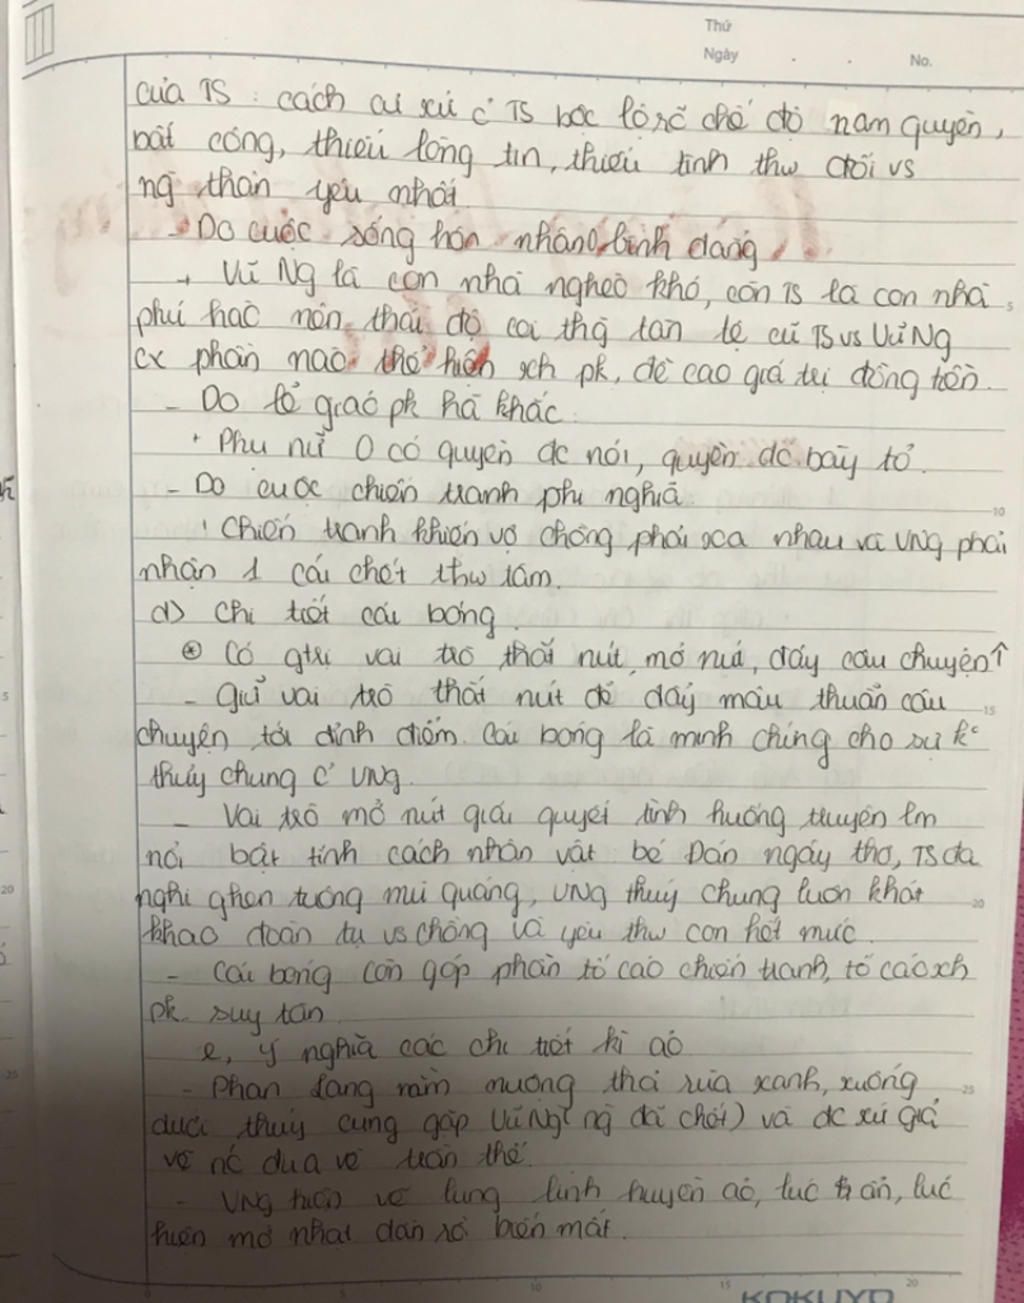 Thứ
Ngày
No.
của TS : cách cư xử c̉ TS bộc lộ rõ chế độ nam quyền,
bất công, thiếu lòng tin, thiếu tình thw đối vs
ng thân yêu nhất
- Do cuộc sống hôn nhân 0 bình đẳng
+ Vũ Ng là con nhà nghèo khó, còn TS là con nhà
phú hào nên thái độ coi thg tàn tệ củ TS vs Vũ Ng
cx phần nào thể hiện xh pk, đề cao giá trị đồng tiền.
- Do lễ giáo pk hà khắc.
+ Phụ nữ 0 có quyền đc nói, quyền đc bày tỏ.
- Do cuộc chiến tranh phi nghĩa
+ Chiến tranh khiến vợ chồng phải xa nhau và VNg phải
nhận 1 cái chết thw tâm.
d) Chi tiết cái bóng.
Có gtrị vai trò thắt nút, mở nút, đẩy câu chuyện ↑
- Giữ vai trò thắt nút để đẩy mâu thuẫn câu
chuyện tới đỉnh điểm. Cái bóng là minh chứng cho sự k°
thủy chung c̉ VNg.
- Vai trò mở nút giải quyết tình huống truyện lm
nổi bật tính cách nhân vật bé Đản ngây thơ, TS đa
nghi ghen tuông mù quáng, VNg thủy chung luôn khát
khao đoàn tụ vs chồng và yêu thw con hết mức.
- Cái bóng còn góp phần tố cáo chiến tranh, tố cáo xh
pk suy tàn
e, ý nghĩa các chi tiết kì ảo
- Phan Lang nằm mộng thả rùa xanh, xuống
dưới thủy cung gặp Vũ Ng (ng đã chết) và đc sứ giả
rẽ nc đưa về trần thế.
- VNg hiện về lung linh huyền ảo, lúc ẩn, lúc
hiện mờ nhạt dần rồi biến mất.
KOKUYO